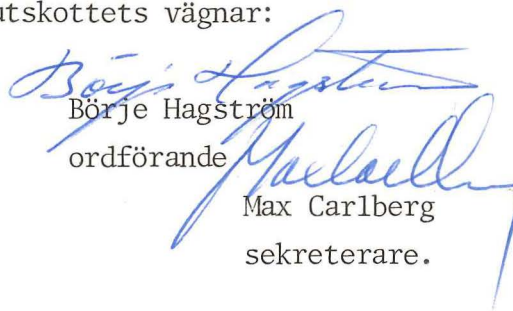 utskottets vägnar:
Börje Hagström
Börje Hagström
ordförande
Max Carlberg
sekreterare.